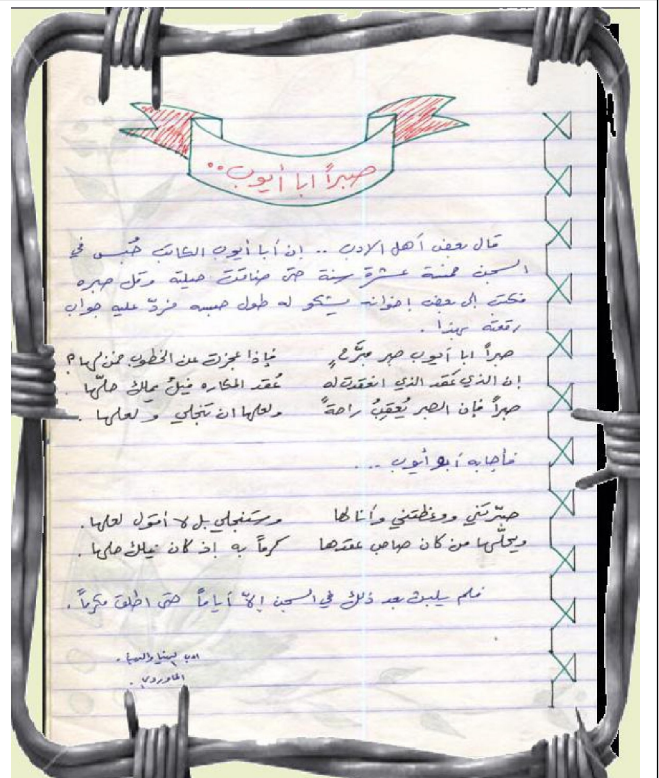 صبراً ابا أيوب..
قال بعض أهل الادب .. إن أبا أيوب الكاتب حُبس في
السجن خمسة عشرة سنة حتى ضاقت حيلته وقل صبره
فكتب إلى بعض اخوانه يشكو له طول حبسه فردّ عليه جواب
رقعته بهذا .
صبراً ابا أيوب صبر مبّرحٍ فإذا عجزت عن الخطوب فمن لها ؟
إن الذي عَقَد الذي انعقدت له عُقد المكاره فيكَ يملك حلّها .
صبراً فإن الصبر يُعقِبُ راحةً ولعلها ان تنجلي ولعلها .
فأجابه أبو أيوب ...
صبّرتني ووعظتني وأنا لها وستنجلي بل لا أقول لعلها .
ويحلّها من كان صاحب عقدها كرماً به إذ كان يملك حلها .
فلم يلبث بعد ذلك في السجن إلاّ أياماً حتى اطلق مكرماً .
ادب الدنيا والدين .
الماوردي .